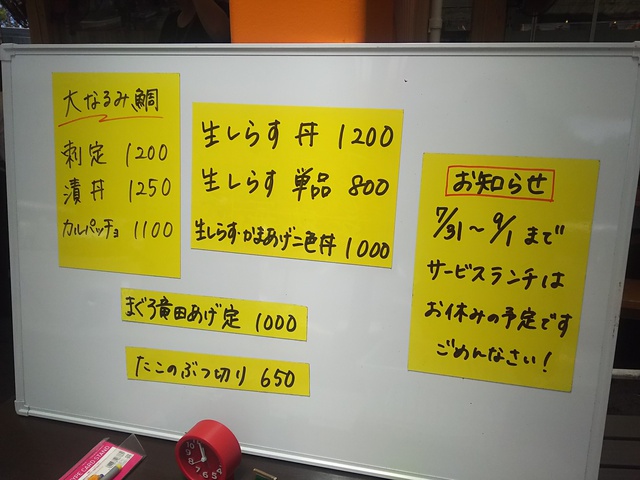 大なるみ鯛
刺定 1200
漬丼 1250
カルパッチョ 1100
生しらす丼 1200
生しらす 単品 800
生しらす・かまあげ二色丼 1000
まぐろ竜田あげ定 1000
たこのぶつ切り 650
お知らせ
7/31〜9/1まで
サービスランチは
お休みの予定です
ごめんなさい!